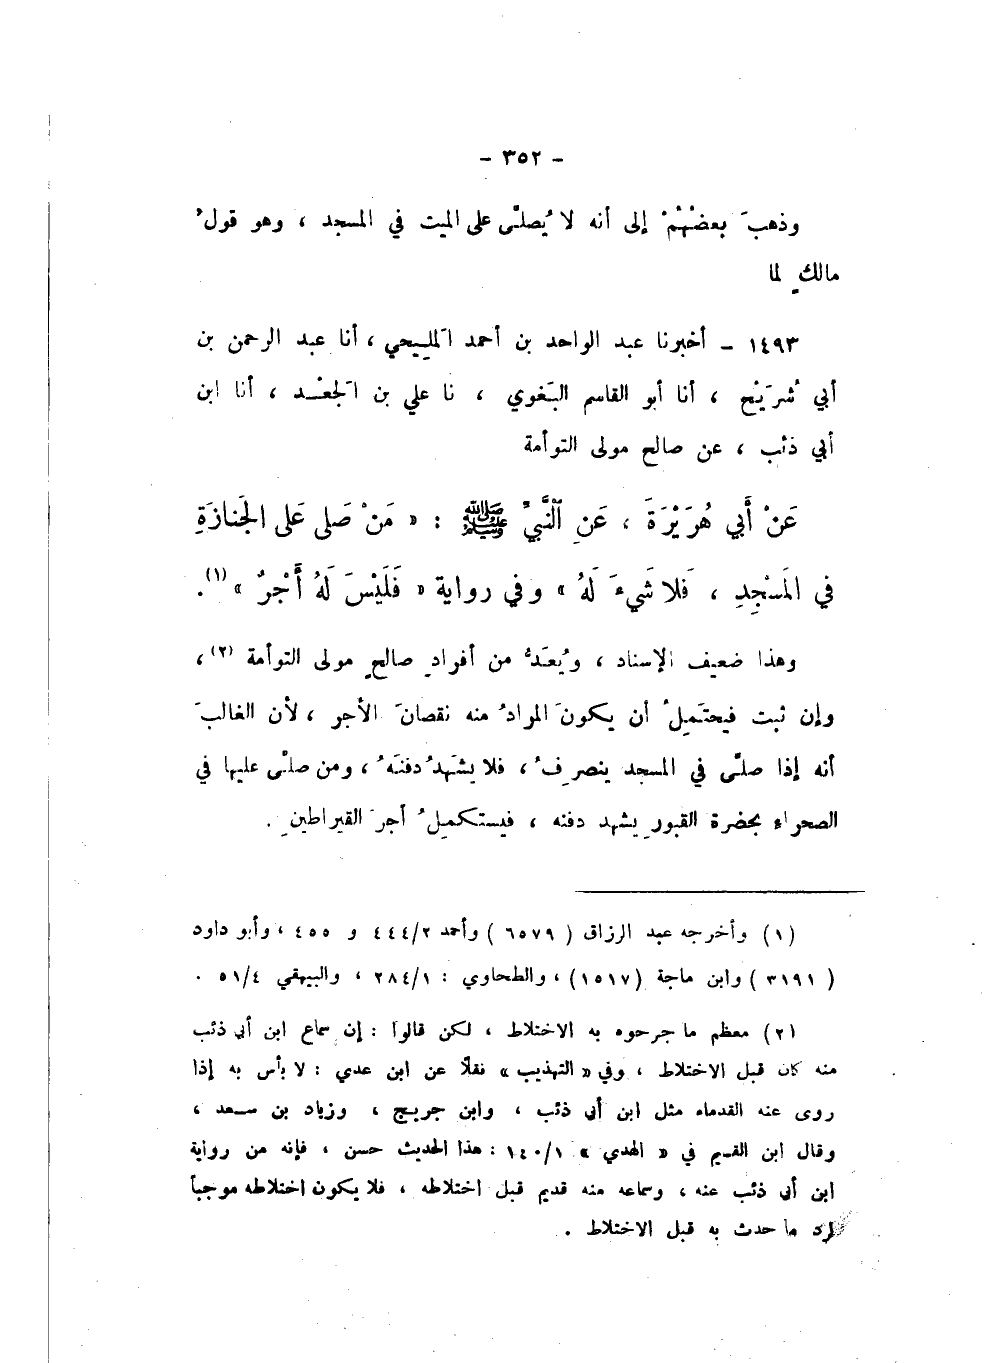 - ٣٥٢ -
وذهبَ بعضُهُمْ إلى أنه لا يُصلَّى على الميت في المسجد ، وهو قولُ
مالكٍ لما
١٤٩٣ - أخبرنا عبد الواحد بن أحمد المَلِيحي ، أنا عبد الرحمن بن
أبي شُرَيْح ، أنا أبو القاسم البَغوي ، نا علي بن الجَعْد ، أنا ابن
أبي ذئب ، عن صالح مولى التوأمة
عَنْ أَبي هُرَيْرَةَ ، عَنِ النَّبيِّ ﷺ : « مَنْ صَلى عَلى الجَنازَةِ
في المَسْجِدِ ، فَلا شَيءَ لَهُ » وفي رواية « فَلَيْسَ لَهُ أَجْرٌ » (١).
وهذا ضعيف الإسناد ، ويُعَدُّ من أفرادِ صالحٍ مولى التوأمة (٢) ،
وإن ثبت فيحتَمِلُ أن يكونَ المرادُ منه نقصانَ الأجر ، لأن الغالبَ
أنه إذا صلَّى في المسجد ينصرِفُ ، فلا يشهَدُ دفنَهُ ، ومن صلَّى عليها في
الصحراء بحضرة القبورِ يشهد دفنه ، فيستكمِلُ أجرَ القيراطينِ .
(١) وأخرجه عبد الرزاق ( ٦٥٧٩ ) وأحمد ٤٤٤/٢ و ٤٥٥ ، وأبو داود
( ٣١٩١ ) وابن ماجة (١٥١٧) ، والطحاوي : ٢٨٤/١ ، والبيهقي ٥١/٤ .
(٢) معظم ما جرحوه به الاختلاط ، لكن قالوا : إن سماع ابن أبي ذئب
منه كان قبل الاختلاط ، وفي « التهذيب » نقلاً عن ابن عدي : لا بأس به إذا
روى عنه القدماء مثل ابن أبي ذئب ، وابن جريج ، وزياد بن سعد ،
وقال ابن القيم في « الهدي » ١٤٠/١ : هذا الحديث حسن ، فإنه من رواية
ابن أبي ذئب عنه ، وسماعه منه قديم قبل اختلاطه ، فلا يكون اختلاطه موجباً
لرد ما حدث به قبل الاختلاط .